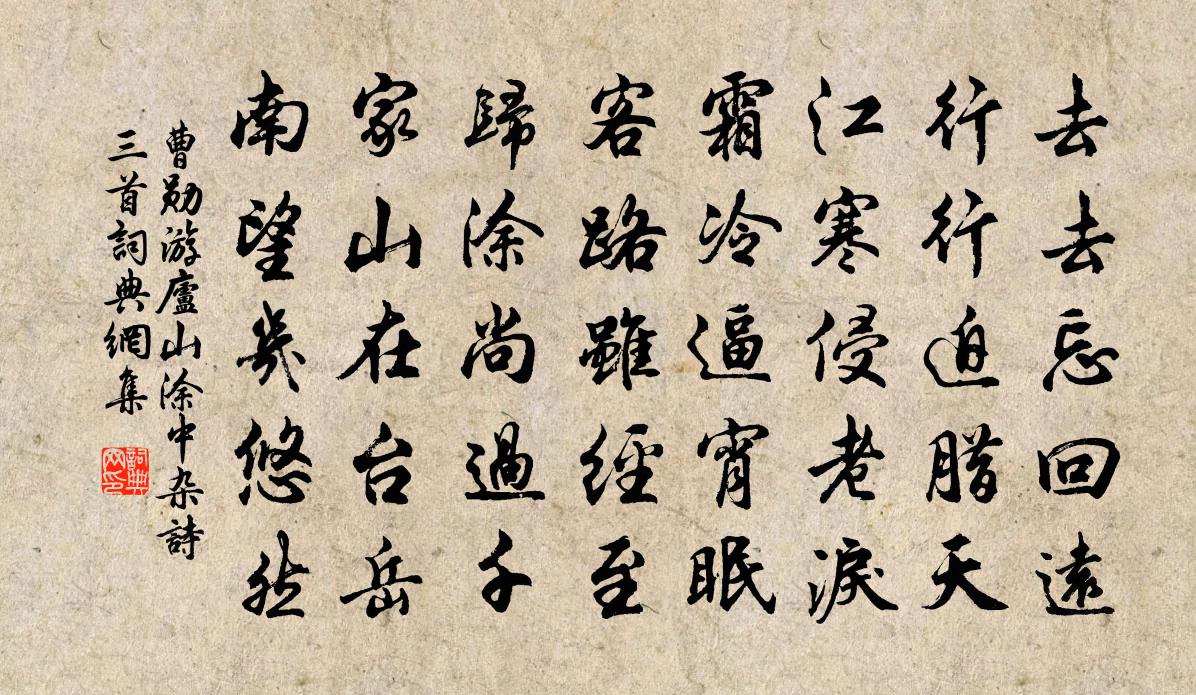 去去忘回遠
行行迫腊天
江寒侵老淚
霜冷逼宵眠
客路雖經至
歸涂尚過千
家山在台岳
南望幾悠然
曹勛游廬山涂中杂詩
三首詞典網集
詞典
网印